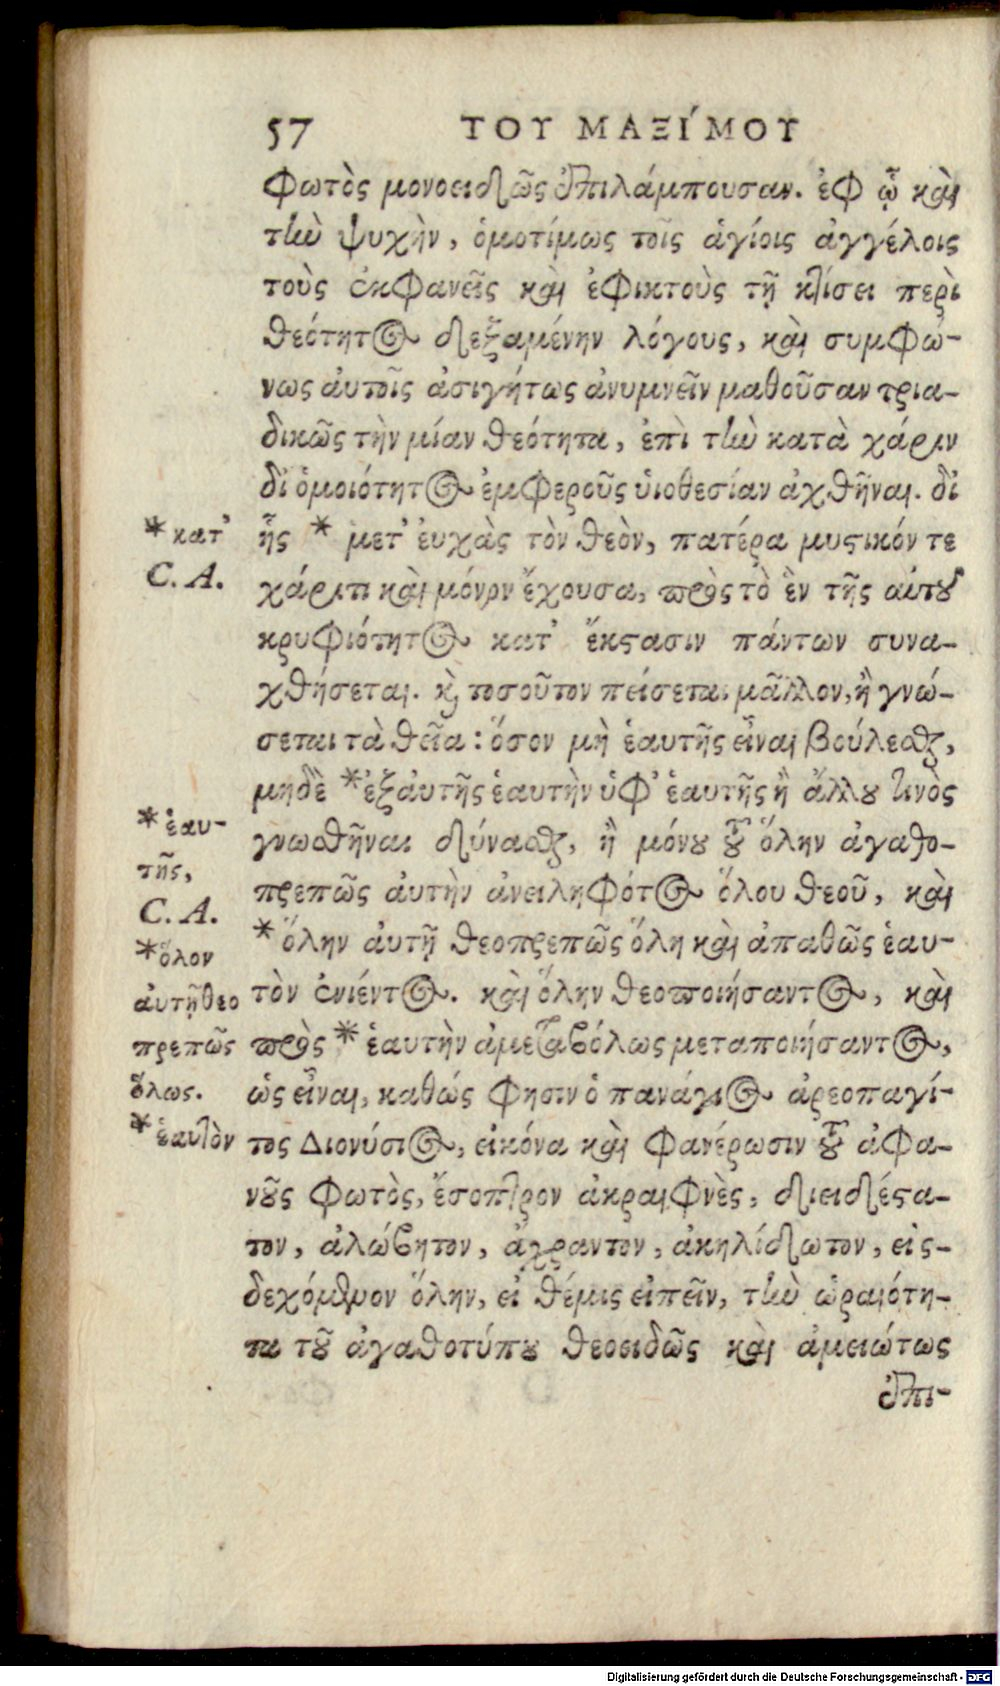 57 ΤΟΥ ΜΑΞΙ΄ΜΟΥ
φωτὸς μονοειδῶς ἐπιλάμπουσαν. ἐφ ᾧ καὶ
τὴν ψυχὴν, ὁμοτίμως τοῖς ἁγίοις ἀγγέλοις
τοὺς ἐκφανεῖς καὶ ἐφικτοὺς τῇ κτίσει περὶ
θεότητος δεξαμένην λόγους, καὶ συμφώ-
νως ἀυτοῖς ἀσιγήτως ἀνυμνεῖν μαθοῦσαν τρια-
δικῶς τὴν μίαν θεότητα, ἐπὶ τὴν κατὰ χάριν
δἰ ὁμοιότητος ἐμφεροῦς ὑιοθεσίαν ἀχθῆναι. δἰ
ἧς * μετ' ἐυχὰς τὸν θεὸν, πατέρα μυστικόν τε
χάριτι καὶ μόνον ἔχουσα, πρὸς τὸ ἓν τῆς αὐτοῦ
κρυφιότητος κατ' ἔκστασιν πάντων συνα-
χθήσεται. καὶ τοσοῦτον πείσεται μᾶλλον, ἢ γνώ-
σεται τὰ θεῖα: ὅσον μὴ ἑαυτῆς εἶναι βούλεσθαι,
μηδὲ * ἐξ ἀυτῆς ἑαυτὴν ὑφ' ἑαυτῆς ἢ ἄλλου τινὸς
γνωσθῆναι δύνασθαι, ἢ μόνου τοῦ ὅλην ἀγαθο-
πρεπῶς ἀυτὴν ἀνειληφότος ὅλου θεοῦ, καὶ
* ὅλην ἀυτῇ θεοπρεπῶς ὅλη καὶ ἀπαθῶς ἑαυ-
τὸν ἐνιέντος. καὶ ὅλην θεοποιήσαντος, καὶ
πρὸς * ἑαυτὴν ἀμεταβόλως μεταποιήσαντος,
ὡς εἶναι, καθώς φησιν ὁ πανάγιος ἀρεοπαγί-
τος Διονύσιος, εἰκόνα καὶ φανέρωσιν τοῦ ἀφα-
νοῦς φωτὸς, ἔσοπτρον ἀκραιφνὲς, διειδέστα-
τον, ἀλώβητον, ἄχραντον, ἀκηλίδωτον, εἰς-
δεχόμενον ὅλην, εἰ θέμις εἰπεῖν, τὴν ὡραιότη-
τα τοῦ ἀγαθοτύπου θεοειδῶς καὶ ἀμειώτως
ἐπι-
* κατ'
C. A.
* ἑαυ-
τῆς,
C. A.
* ὅλον
ἀυτῇ θεο
πρεπῶς
ὅλως.
* ἑαυτὸν
Digitalisierung gefördert durch die Deutsche Forschungsgemeinschaft - DFG